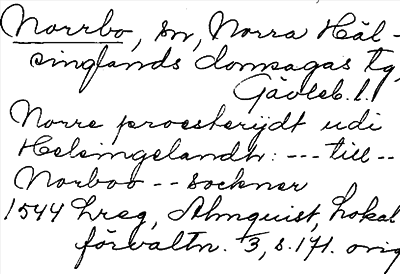 Norrbo, sn, Norra Häl-
singlands domsagas tg,
Gävleb. l.
Norre proesterijdt udi
Helsingelandh: --- till --
Norboo -- sockner
1544 Lreg, Almquist, Lokal
förvaltn. 1/3, s. 171. orig